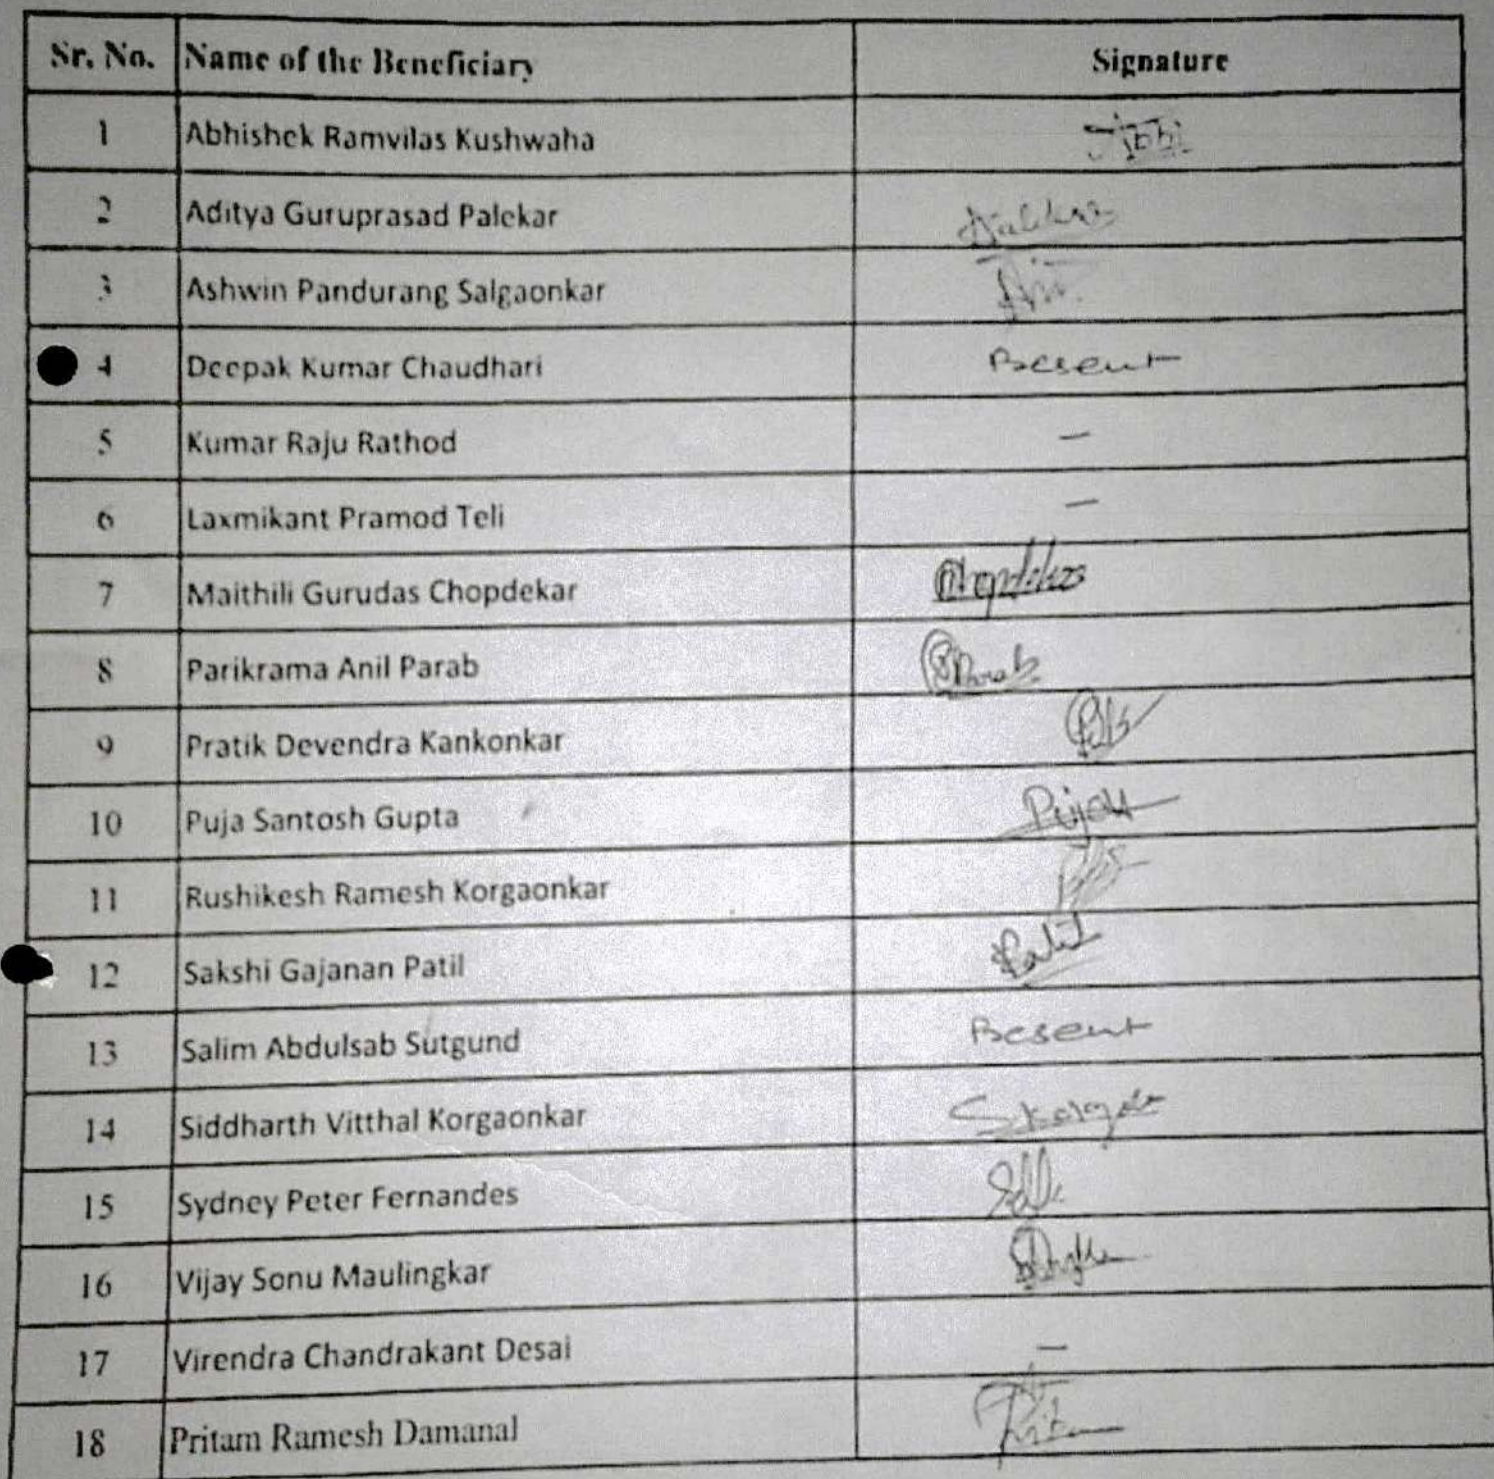 Sr. No. Name of the Beneficiary Signature
1 Abhishek Ramvilas Kushwaha
2 Aditya Guruprasad Palekar
3 Ashwin Pandurang Salgaonkar
4 Deepak Kumar Chaudhari
5 Kumar Raju Rathod —
6 Laxmikant Pramod Teli —
7 Maithili Gurudas Chopdekar
8 Parikrama Anil Parab
9 Pratik Devendra Kankonkar
10 Puja Santosh Gupta
11 Rushikesh Ramesh Korgaonkar
12 Sakshi Gajanan Patil Patil
13 Salim Abdulsab Sutgund
14 Siddharth Vitthal Korgaonkar
15 Sydney Peter Fernandes
16 Vijay Sonu Maulingkar
17 Virendra Chandrakant Desai —
18 Pritam Ramesh Damanal